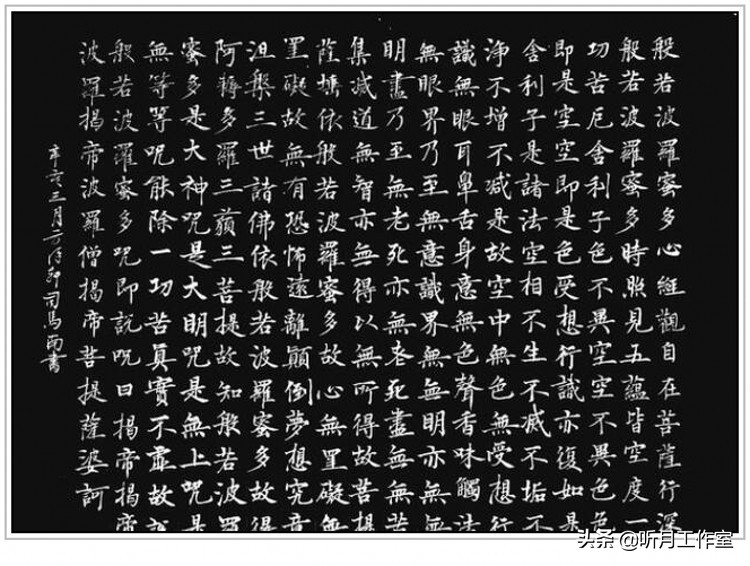 般若波羅蜜多心經觀自在菩薩行深
般若波羅蜜多時照見五蘊皆空度一
切苦厄舍利子色不異空空不異色色
即是空空即是色受想行識亦復如是
舍利子是諸法空相不生不滅不垢不
淨不增不減是故空中無色無受想行
識無眼耳鼻舌身意無色聲香味觸法
無眼界乃至無意識界無無明亦無無
明盡乃至無老死亦無老死盡無無苦
集滅道無智亦無得以無所得故菩提
薩埵依般若波羅蜜多故心無罣礙無
罣礙故無有恐怖遠離顛倒夢想究竟
涅槃三世諸佛依般若波羅蜜多故得
阿耨多羅三藐三菩提故知般若波羅
蜜多是大神咒是大明咒是無上咒是
無等等咒能除一切苦真實不虛故說
般若波羅蜜多咒即說咒曰揭帝揭帝
波羅揭帝波羅僧揭帝菩提薩婆訶
辛亥三月司馬書
头条 @听月工作室